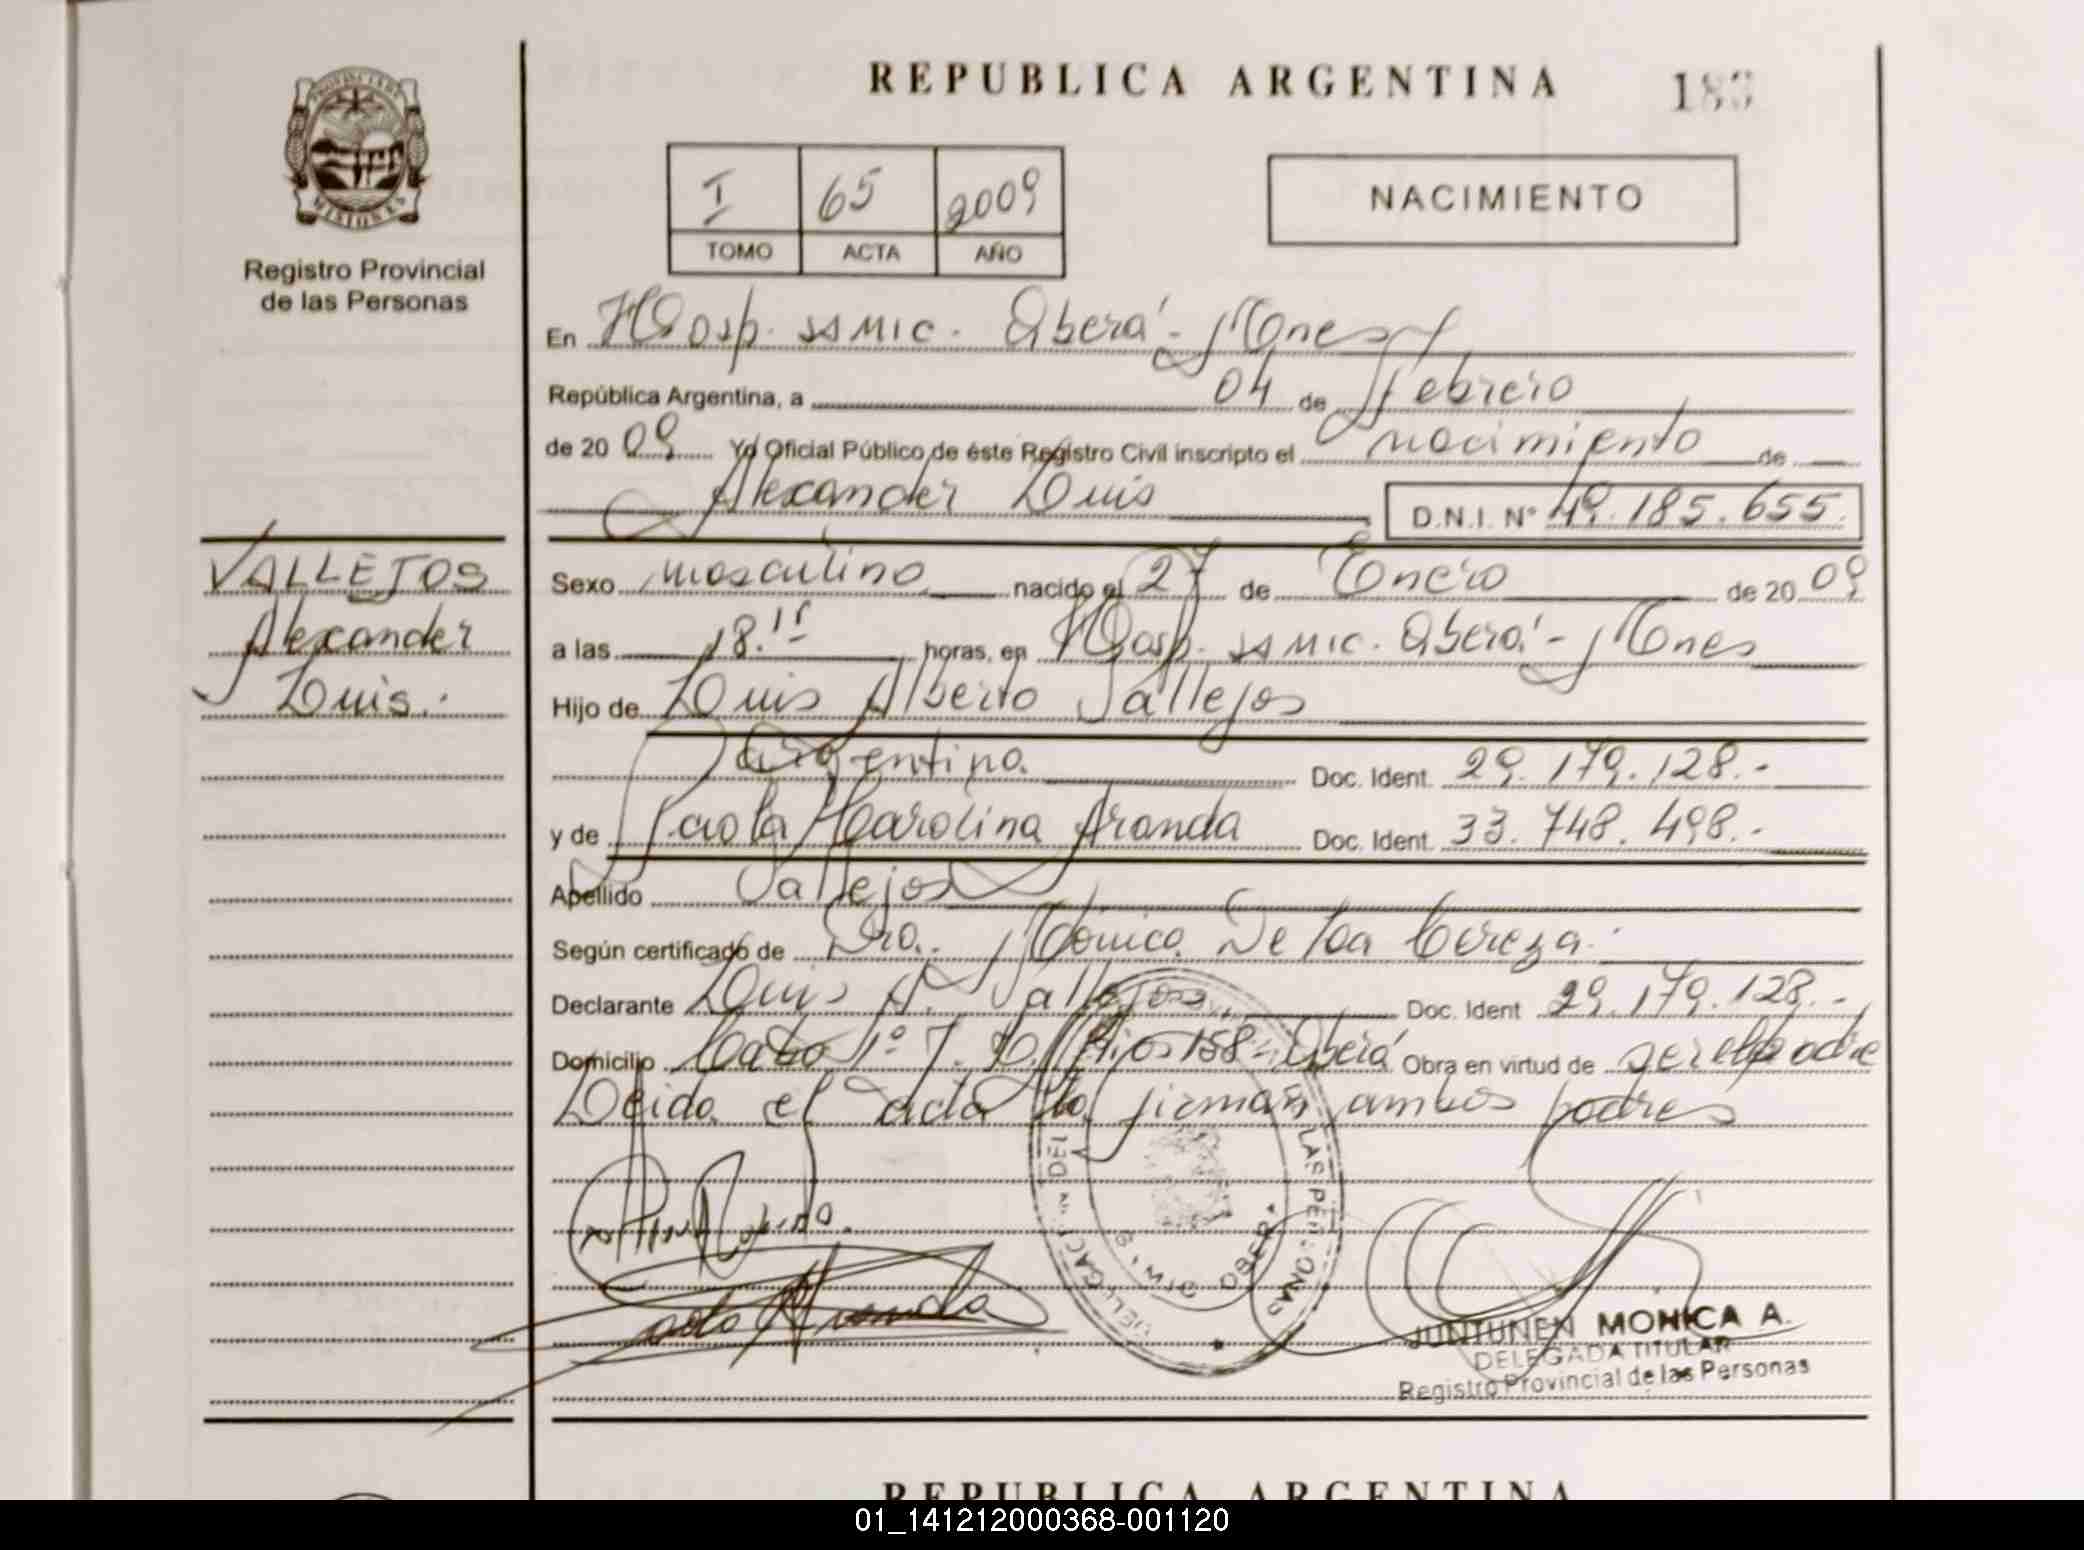 REPUBLICA ARGENTINA
PROVINCIA DE
MISIONES
Registro Provincial
de las Personas
I 65 2009
TOMO ACTA AÑO
NACIMIENTO
En Hosp. SAMIC. Oberá - Mnes
República Argentina, a 04 de Febrero
de 2009 Yo Oficial Público de éste Registro Civil inscripto el nacimiento de
Alexander Luis D.N.I. Nº 49.185.655.
VALLEJOS
Alexander
Luis.
Sexo masculino nacido el 27 de Enero de 2009
a las 18.15 horas, en Hosp. SAMIC. Oberá - Mnes
Hijo de Luis Alberto Vallejos
argentino. Doc. Ident. 29.179.128.-
y de Paola Carolina Aranda Doc. Ident. 33.748.498.-
Apellido Vallejos
Según certificado de Dra. Mónica De La Cereza.
Declarante Luis A. Vallejos Doc. Ident 29.179.128.-
Domicilio Cabo 1º J. Ríos 158 - Oberá Obra en virtud de ser el padre
Leida el acta la firman ambos padres
LAS PERSONAS
OBERA
Aranda
JUNTUNEN MONICA A.
DELEGADA TITULAR
Registro Provincial de las Personas
REPUBLICA ARGENTINA
01_141212000368-001120